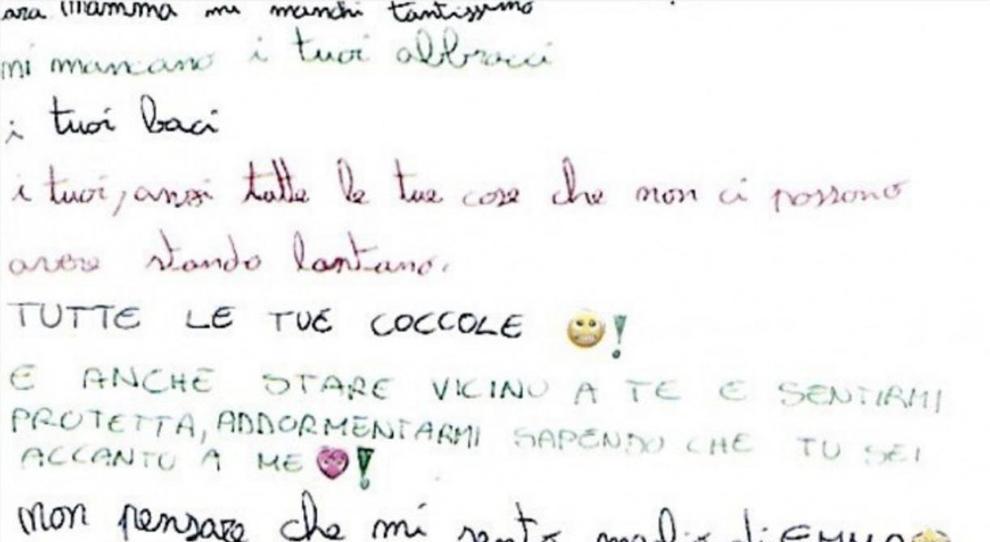 ara mamma mi manchi tantissimo
mi mancano i tuoi abbracci
i tuoi baci
i tuoi, anzi tutte le tue cose che non ci possono
avere stando lontano.
TUTTE LE TUE COCCOLE !
E ANCHE STARE VICINO A TE E SENTIRMI
PROTETTA, ADDORMENTARMI SAPENDO CHE TU SEI
ACCANTO A ME !
non pensare che mi sento meglio di